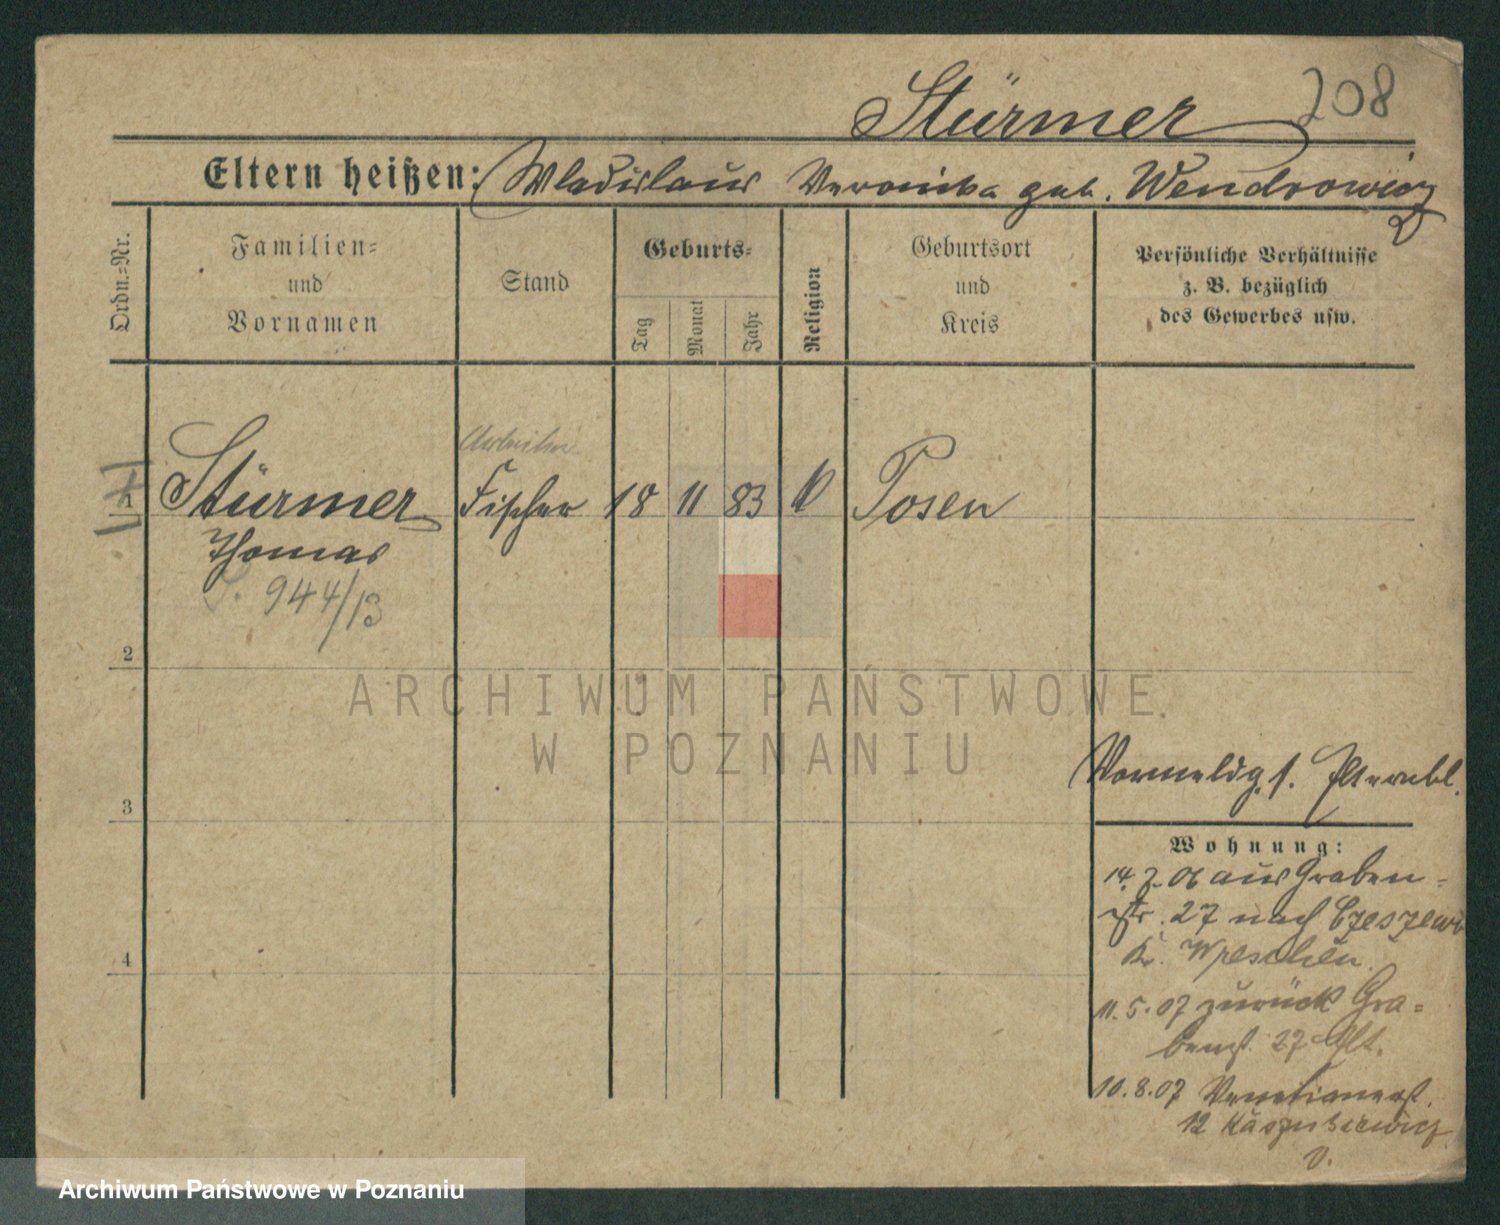 Stürmer 208
Eltern heißen: Wladislaus Veronika geb. Wendrowicz
Ordn.=Nr.
Familien=
und
Vornamen
Stand
Geburts=
Tag
Monat
Jahr
Religion
Geburtsort
und
Kreis
Persönliche Verhältnisse
z. B. bezüglich
des Gewerbes usw.
Arbeiter
1 Stürmer Fischer 18 11 83 k Posen
Thomas
944/13
2
ARCHIWUM PAŃSTWOWE
W POZNANIU
Vormeldg. s. Elternbl.
3
Wohnung:
14. 7. 06 aus Graben=
str. 27 nach Czeszewo
Kr. Wreschen.
4
11. 5. 07 zurück Gra=
benst. 27 Elt.
10. 8. 07 Venetianerst.
12 Kaspurowicz
Archiwum Państwowe w Poznaniu